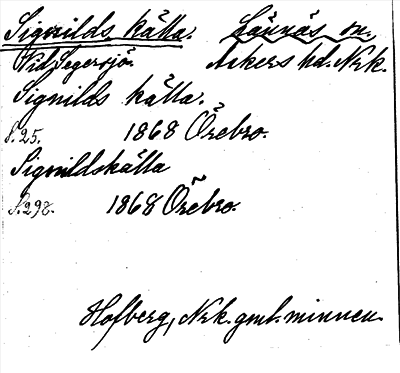 Signilds källa. Lännäs sn.
Vid Segersjö. Askers hd. Nrk.
Signilds källa.
S. 25. 1868 Örebro.
Signildskälla
S. 298. 1868 Örebro.
Hofberg, Nrk. gml. minnen.